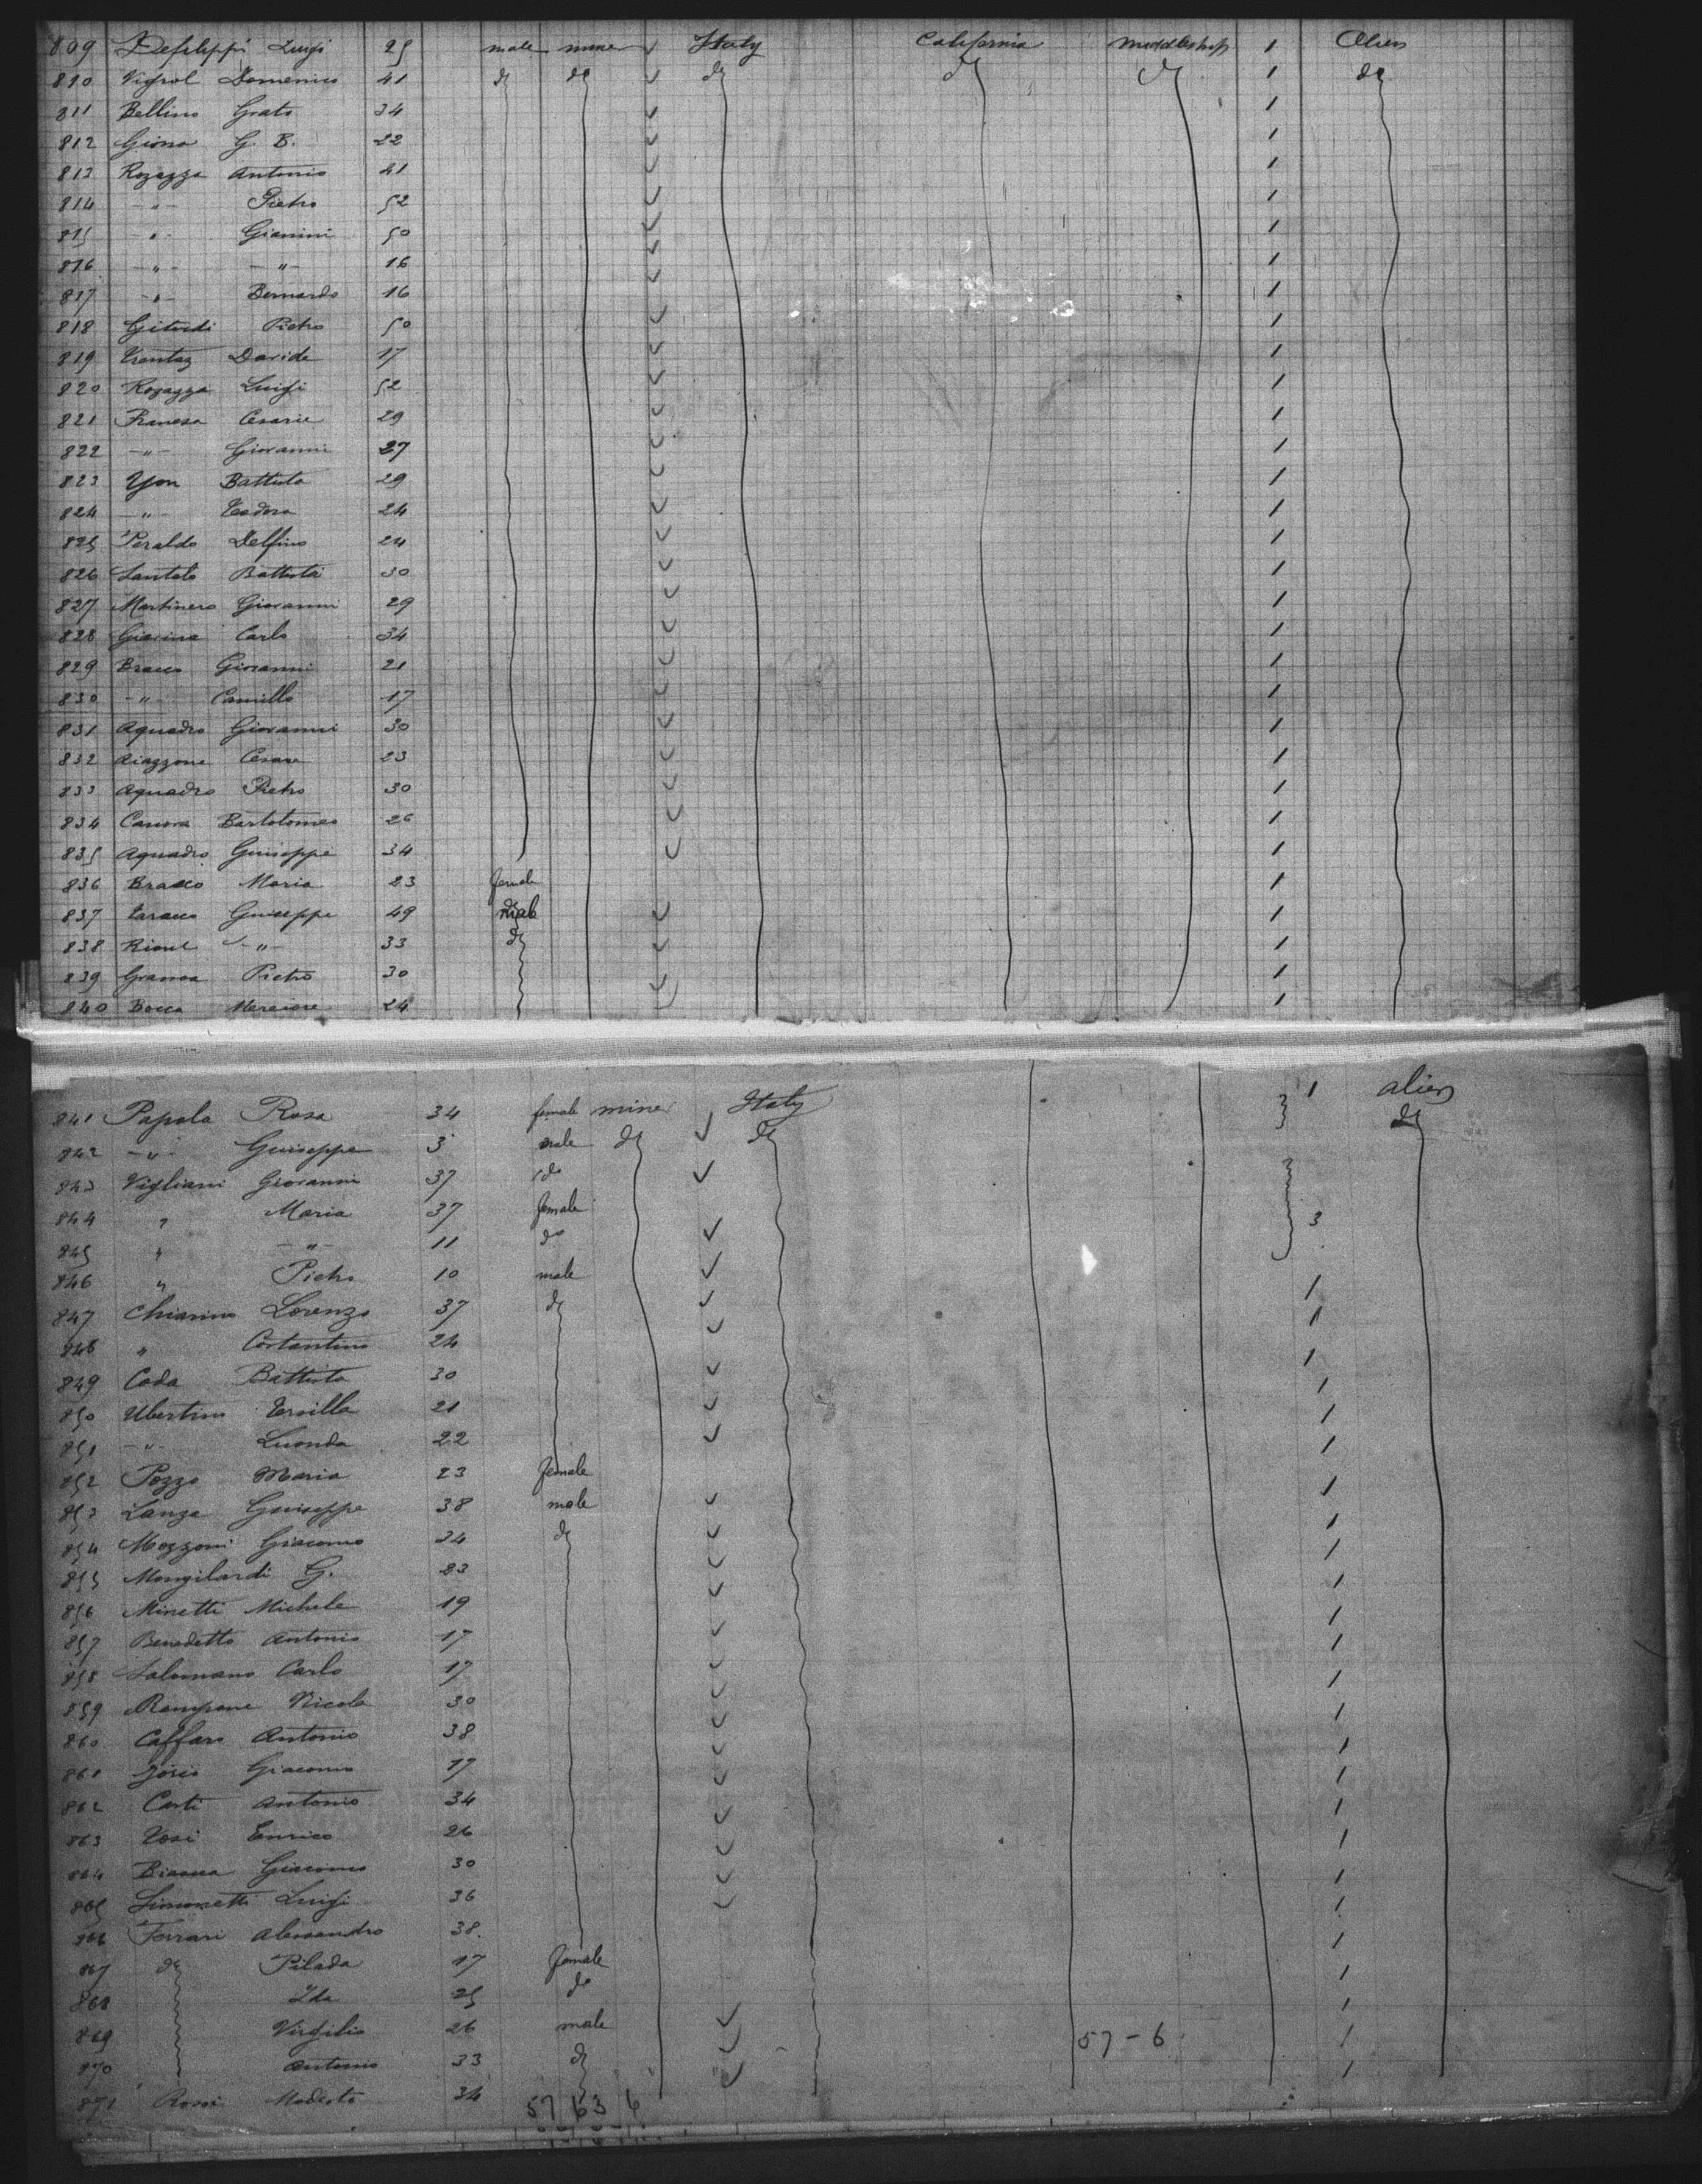 809 Defilippi Luigi 25 male miner Italy California middleship 1 Alien
810 Domenico 41 do do do do do 1 do
811 Bellino Grato 34 1
812 Giona G B. 22 1
813 Rozazza Antonio 41 1
814 - " - Pietro 52 1
815 - " - Gianini 50 1
816 - " - - " - 16 1
817 - " - Bernardo 16 1
818 Pietro 50 1
819 Davide 17 1
820 Rozazza Luigi 52 1
821 Franesa Cesarie 29 1
822 - " - Giovanni 27 1
823 Yon Battista 29 1
824 - " - Teodora 24 1
825 Peraldo Delfino 24 1
826 Battista 30 1
827 Martinero Giovanni 29 1
828 Giacina Carlo 34 1
829 Bracco Giovanni 21 1
830 - " - Camillo 17 1
831 Aquadro Giovanni 30 1
832 Aiazzone Cesare 23 1
833 Aquadro Pietro 30 1
834 Canova Bartolomeo 26 1
835 Aquadro Guiseppe 34 1
836 Bracco Maria 23 female 1
837 Guiseppe 49 male 1
838 - " - 33 do 1
839 Pietro 30 1
840 Bocca 24 1
841 Papola Rosa 34 female miner Italy 1 alien
842 - " - Guiseppe 3 male do do do
843 Vigliani Giovanni 37 do
844 " Maria 37 female 3
845 " - " - 11 do
846 " Pietro 10 male 1
847 Chiarino Lorenzo 37 do 1
848 " Costantino 24 1
849 Coda Battista 30 1
850 Ubertino Ersilla 21 1
851 - " - Luonda 22 1
852 Pozzo Maria 23 female 1
853 Lanza Guiseppe 38 male 1
854 Mozzoni Giacomo 34 do 1
855 Mongilardi G. 23 1
856 Minetti Michele 19 1
857 Benedetto Antonio 17 1
858 Salomano Carlo 17 1
859 Rampone Nicola 30 1
860 Caffaro Antonio 38 1
861 Giacomo 17 1
862 Conti Antonio 34 1
863 Enrico 26 1
864 Giacomo 30 1
865 Simonetti Luigi 36 1
866 Ferrari Alessandro 38. 1
867 do Pilada 17 female 1
868 Ida 25 do 1
869 Virgilio 26 male 57 - 6 1
870 Antonio 33 do 1
871 Rossi Modesto 34
57 63 6